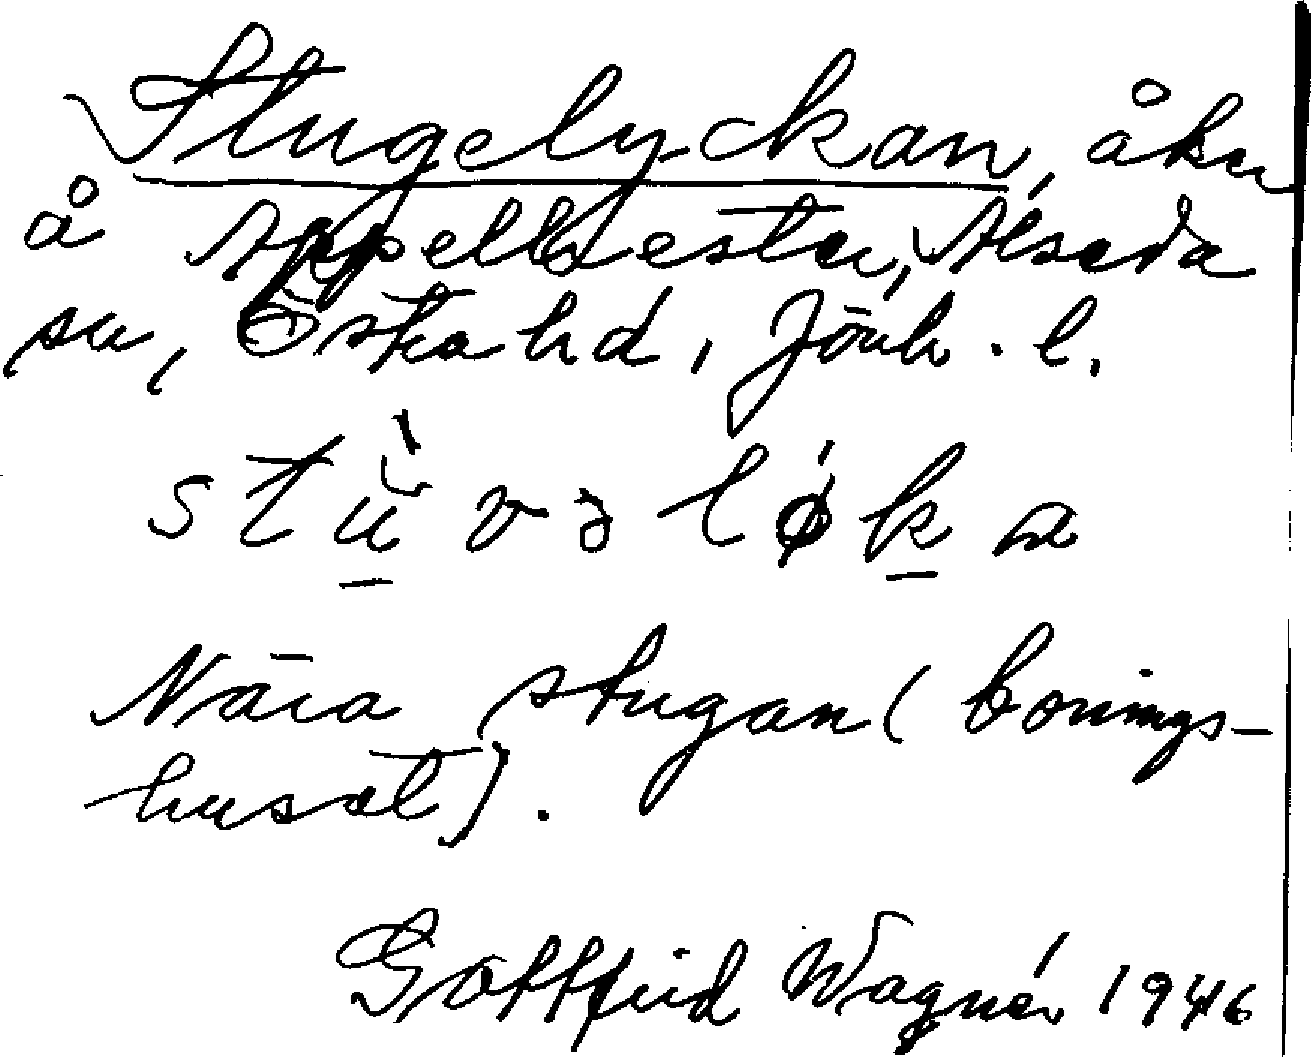 Stugelyckan, åker
å Äppelhester, Alseda
sn, Östra hd, Jönk. l.
stùvəløka
Nära stugan (bonings-
huset).
Gottfrid Wagnér 1946